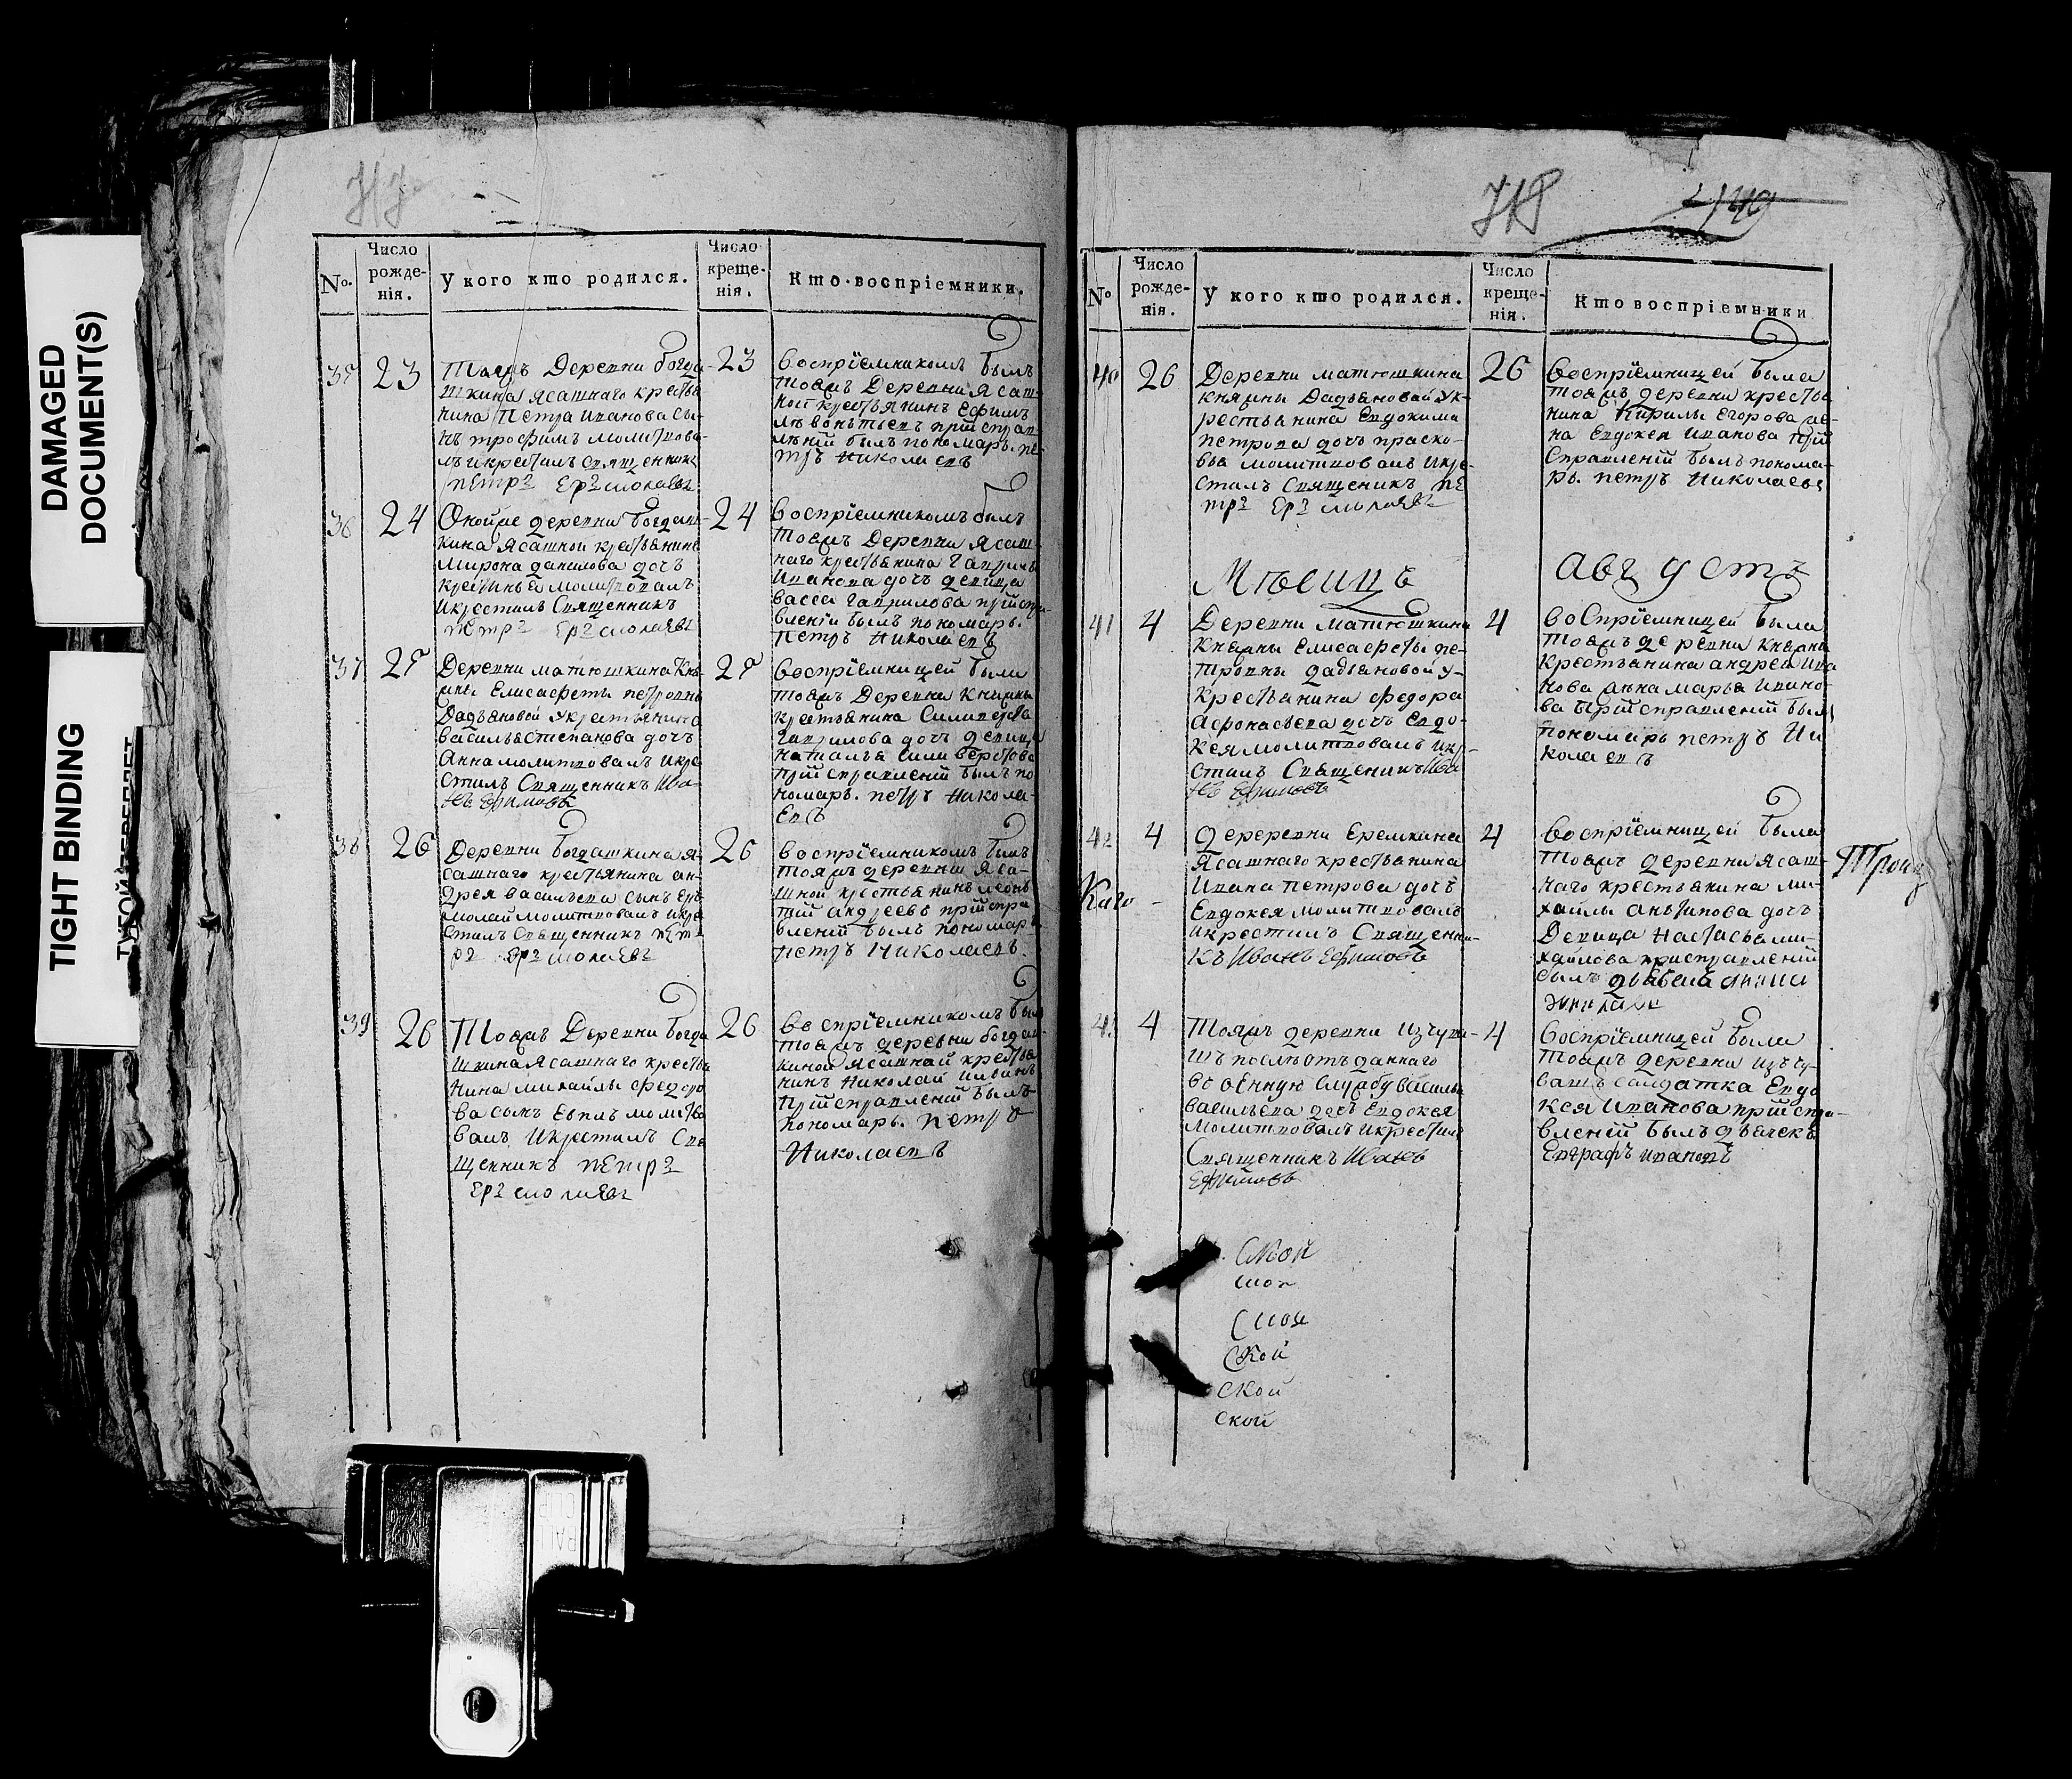 DAMAGED
DOCUMENT(S)
TIGHT BINDING
ТУГОЙ ПЕРЕПЛЕТ
№.
Число
рожде-
нія.
У кого кто родился.
Число
креще-
нія.
Кто воспріемники.
35
23
Тояжъ Деревни богда-
шкина Ясашнаго крестья
нина Петра Иванова сы-
нъ трофимъ молитвова-
лъ икрестилъ священникъ
петръ Ермолаевъ
23
Воспріемникомъ былъ
тояжъ Деревни Ясаш-
ной крестьянинъ Ефимъ
леонтьевъ приисправ-
леніи былъ пономарь пе-
тръ Николаевъ
36
24
Оной же деревни богдаш-
кина Ясашной крестьянина
мирона данилова дочь
молитвовалъ
икрестилъ Священникъ
петръ Ермолаевъ
24
Воспріемникомъ былъ
тояжъ Деревни Ясаш
наго крестьянина Гаврилы
Иванова дочь девица
васса гаврилова приисправ-
вленіи былъ пономарь.
Петръ Николаевъ
37
25
Деревни матюшкина Кня-
жны Елисафеты петровны
Дадьяновой Укрестьянина
василья степанова дочь
Анна молитвовалъ икре
стилъ Священникъ Ива-
нъ Ефимовъ
25
воспріемницей была
тояжъ Деревни Княжны
крестьянина Силиверста
гаврилова дочь девица
наталья силиверстова
приисправленіи былъ по
номарь. петръ Никола-
евъ
38
26
Деревни богдашкина Я-
сашнаго крестьянина ан-
дрея васильева сынъ Ер-
молай молитвовалъ икре
стилъ Священникъ пет
ръ Ермолаевъ
26
воспріемникомъ былъ
тояжъ деревни Яса-
шной крестьянинъ леон-
тій андреевъ приисправ
вленіи былъ пономарь
петръ Николаевъ.
39
26
Тояжъ Деревни богда
шкина Ясашнаго крестья
нина михайлы федоро
ва сынъ Евплъ молитво
валъ Икрестилъ Свя
щенникъ петръ
Ермолаевъ
26
воспріемникомъ былъ
тояжъ деревни богдаш-
киной Ясашнай крестья
нинъ Николай
приисправленіи былъ
пономарь. петръ
Николаевъ
№
Число
рожде-
нія.
У кого кто родился.
Число
креще-
нія.
Кто воспріемники
40
26
Деревни матюшкина
княжны Дадьяновой Ук-
рестьянина Евдокима
петрова дочь праско-
вья молитвовалъ икре-
стилъ Священикъ пе
тръ Ермолаевъ
26
воспріемницей была
тояжъ деревни крестья
нина Кирилы Егорова же-
на Евдокея Иванова при
Справленіи былъ понома-
рь. петръ Николаевъ
Мѣсицъ
Августъ
41
4
Деревни матюшкина
Княжны Елисафеты пе-
тровны дадьяновой у-
крестьянина федора
Афонасьева дочь Евдо-
кея молитвовалъ икре-
стилъ Священикъ Ива
нъ Ефимовъ
4
воспріемницей была
тояжъ деревни княжны
крестьянина андрея Ива
нова марья Ивано-
ва Приисправленіи былъ
пономарь петръ Ни
колаевъ
42
4
Деревни Еремкина
Ясашнаго крестьянина
Ивана петрова дочь
Евдокея молитвовалъ
икрестилъ Священни-
къ Иванъ Ефимовъ
4
воспріемницей была
тояжъ деревни Ясаш-
наго крестьянина ми-
хайлы антипова дочь
Девица настасья ми-
хайлова приисправленіи
былъ
Каго
Троиц
43
4
Тояжъ деревни изчува-
шъ послѣ отъданнаго
военную службу василья
васильева дочь Евдокея
молитвовалъ икрестилъ
Священникъ Иванъ
Ефимовъ
4
воспріемницей была
тояжъ деревни изъ чу-
вашъ салдатка Евдо
кея Иванова приисправ-
вленіи былъ дьячекъ
Евграфъ Ивановъ
Ской
Ской
ской
ской